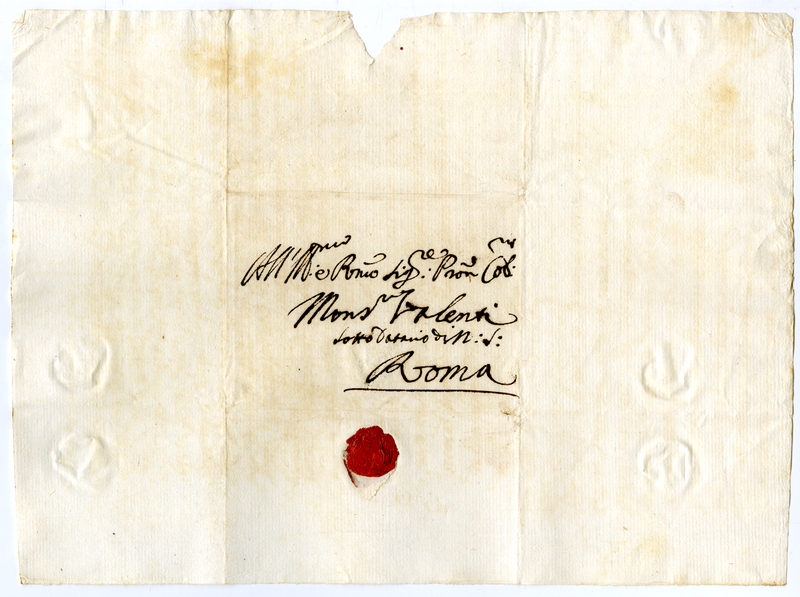 All'Ill.mo e R.mo Sig.re Pron Col.mo
Mons.r Valenti
sotto Datario di N: S:
Roma